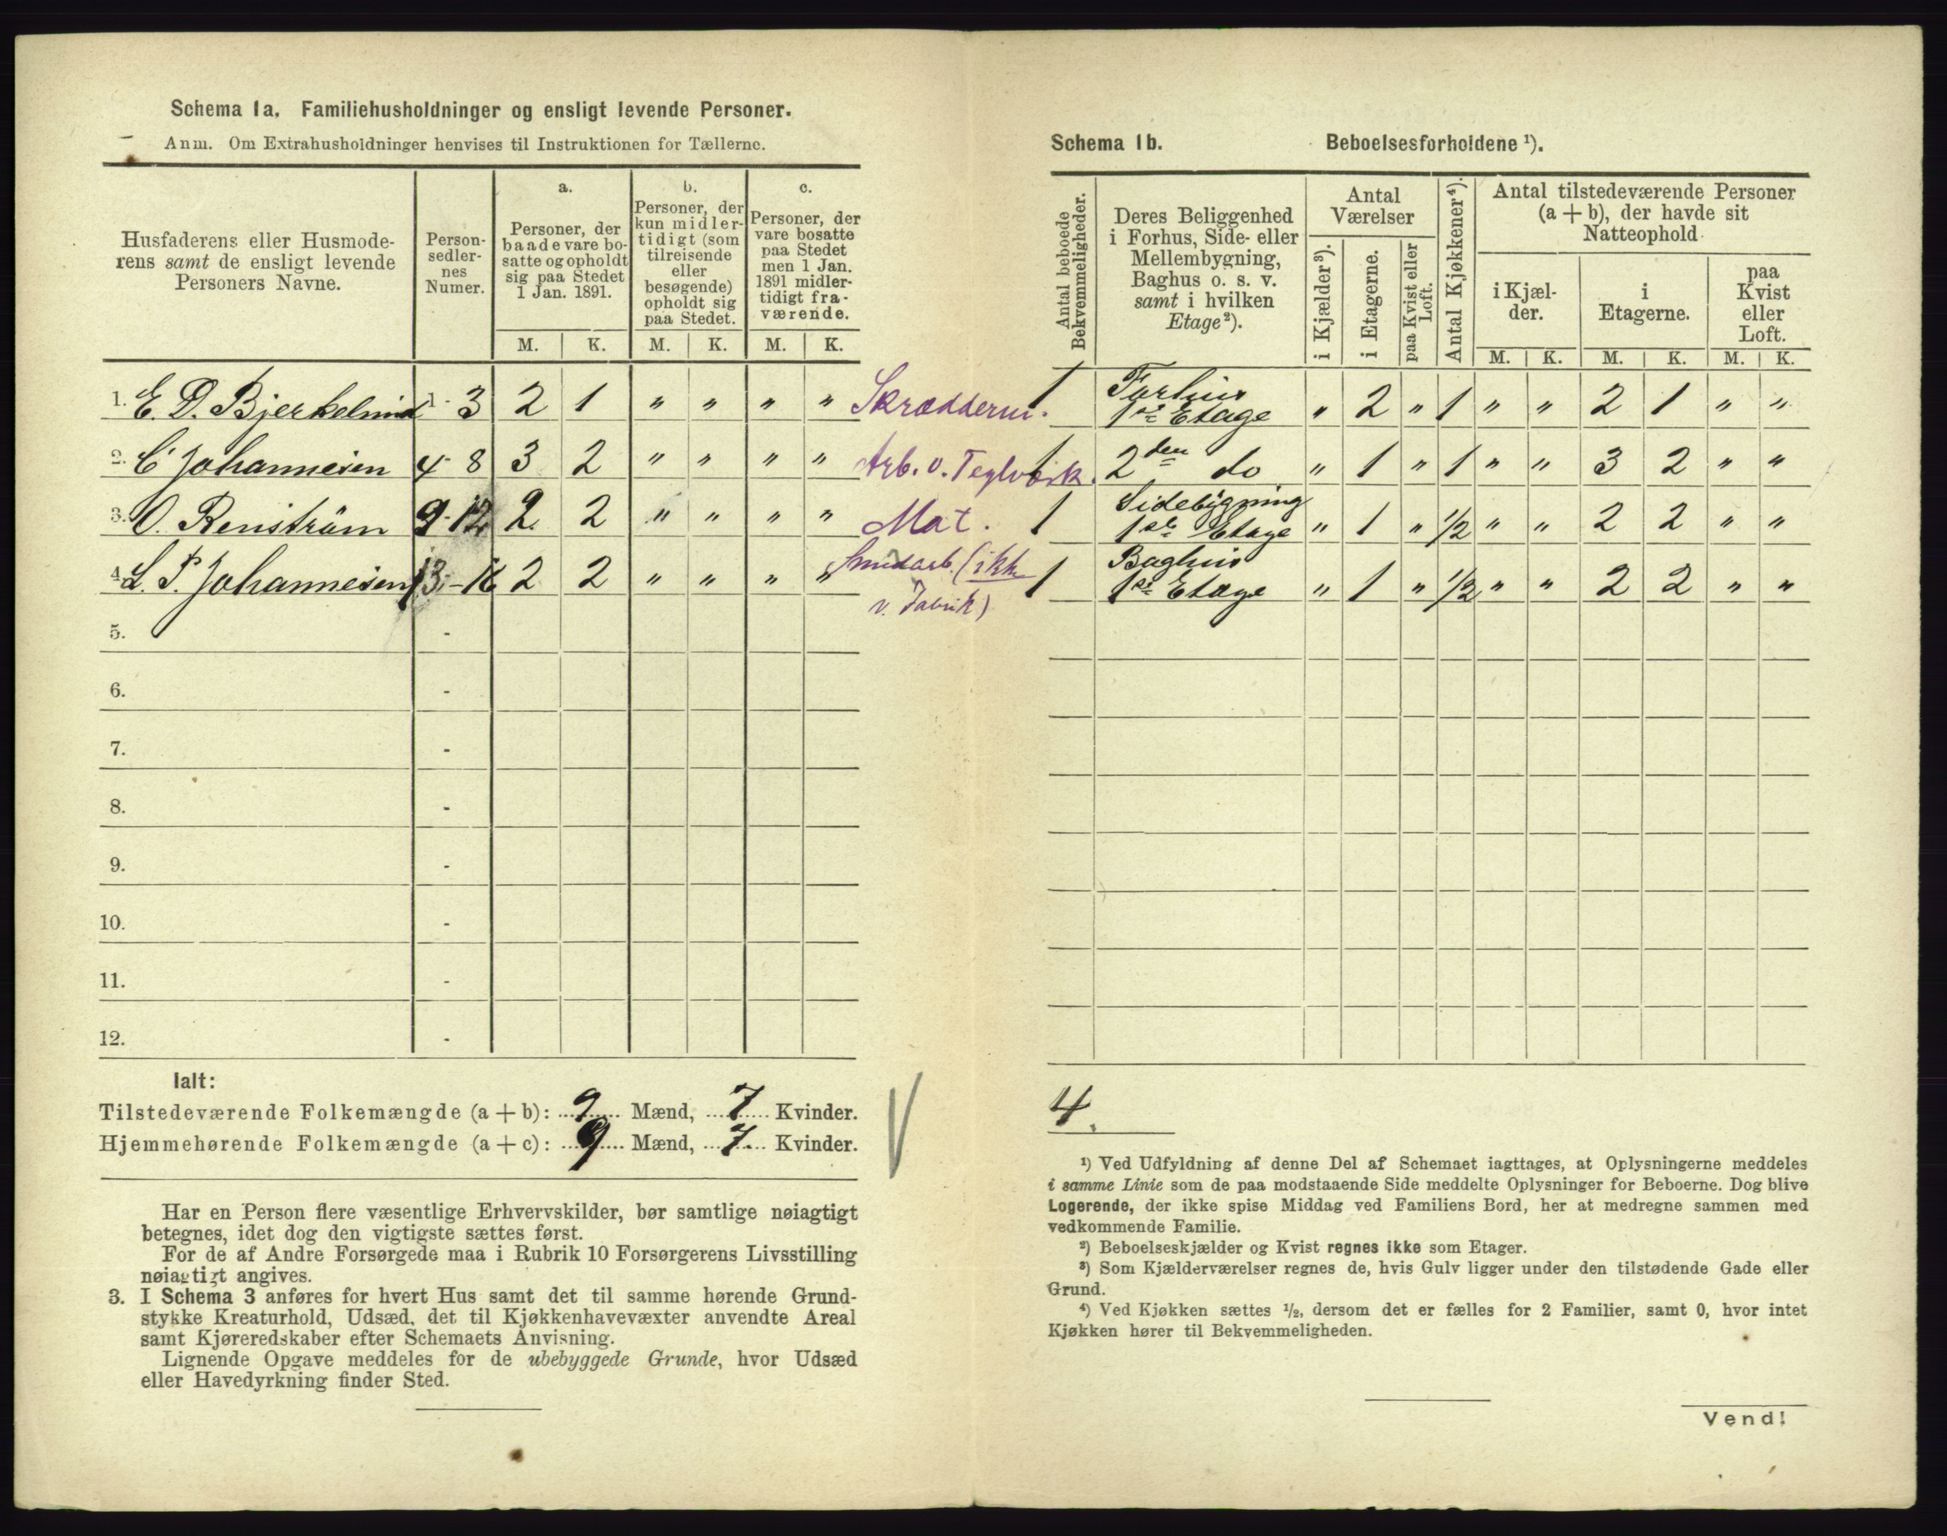 Schema 1a. Familiehusholdninger og ensligt levende Personer.
Anm. Om Extrahusholdninger henvises til Instruktionen for Tællerne.
Husfaderens eller Husmode-
rens samt de ensligt levende
Personers Navne.
Person-
sedler-
nes
Numer.
a.
Personer, der
baade vare bo-
satte og opholdt
sig paa Stedet
1 Jan. 1891.
b.
Personer, der
kun midler-
tidigt (som
tilreisende
eller
besøgende)
opholdt sig
paa Stedet.
c.
Personer, der
vare bosatte
paa Stedet
men 1 Jan.
1891 midler-
tidigt fra-
værende.
M. K. M. K. M. K.
1. E. D. Bjerkelund 1-3 2 1 " " " " Skrædderm.
2. C Johannesen 4-8 3 2 " " " " Arb. v. Teglværk.
3. O. Renström 9-12 2 2 " " " " Mat.
4. L. P. Johannesen 13-16 2 2 " " " " Smedarb. (ikke
v. Fabrik)
5. -
6. -
7. -
8. -
9. -
10. -
11. -
12. -
Ialt:
Tilstedeværende Folkemængde (a + b): 9 Mænd, 7 Kvinder.
Hjemmehørende Folkemængde (a + c): 9 Mænd, 7. Kvinder.
Har en Person flere væsentlige Erhvervskilder, bør samtlige nøiagtigt
betegnes, idet dog den vigtigste sættes først.
For de af Andre Forsørgede maa i Rubrik 10 Forsørgerens Livsstilling
nøiagtigt angives.
3. I Schema 3 anføres for hvert Hus samt det til samme hørende Grund-
stykke Kreaturhold, Udsæd, det til Kjøkkenhavevæxter anvendte Areal
samt Kjøreredskaber efter Schemaets Anvisning.
Lignende Opgave meddeles for de ubebyggede Grunde, hvor Udsæd
eller Havedyrkning finder Sted.
Schema 1b. Beboelsesforholdene ¹).
Antal beboede
Bekvemmeligheder.
Deres Beliggenhed
i Forhus, Side- eller
Mellembygning,
Baghus o. s. v.
samt i hvilken
Etage²).
Antal
Værelser
i Kjælder³).
i Etagerne.
paa Kvist eller
Loft.
Antal Kjøkkener⁴).
Antal tilstedeværende Personer
(a + b), der havde sit
Natteophold
i Kjæl-
der.
i
Etagerne.
paa
Kvist
eller
Loft.
M. K. M. K. M. K.
1 Forhus
1ste Etage " 2 " 1 " " 2 1 " "
1 2den do " 1 " 1 " " 3 2 " "
1 Sidebygning
1ste Etage " 1 " 1/2 " " 2 2 " "
1 Baghus
1ste Etage " 1 " 1/2 " " 2 2 " "
4.
¹) Ved Udfyldning af denne Del af Schemaet iagttages, at Oplysningerne meddeles
i samme Linie som de paa modstaaende Side meddelte Oplysninger for Beboerne. Dog blive
Logerende, der ikke spise Middag ved Familiens Bord, her at medregne sammen med
vedkommende Familie.
²) Beboelseskjælder og Kvist regnes ikke som Etager.
³) Som Kjælderværelser regnes de, hvis Gulv ligger under den tilstødende Gade eller
Grund.
⁴) Ved Kjøkken sættes ½, dersom det er fælles for 2 Familier, samt 0, hvor intet
Kjøkken hører til Bekvemmeligheden.
Vend!